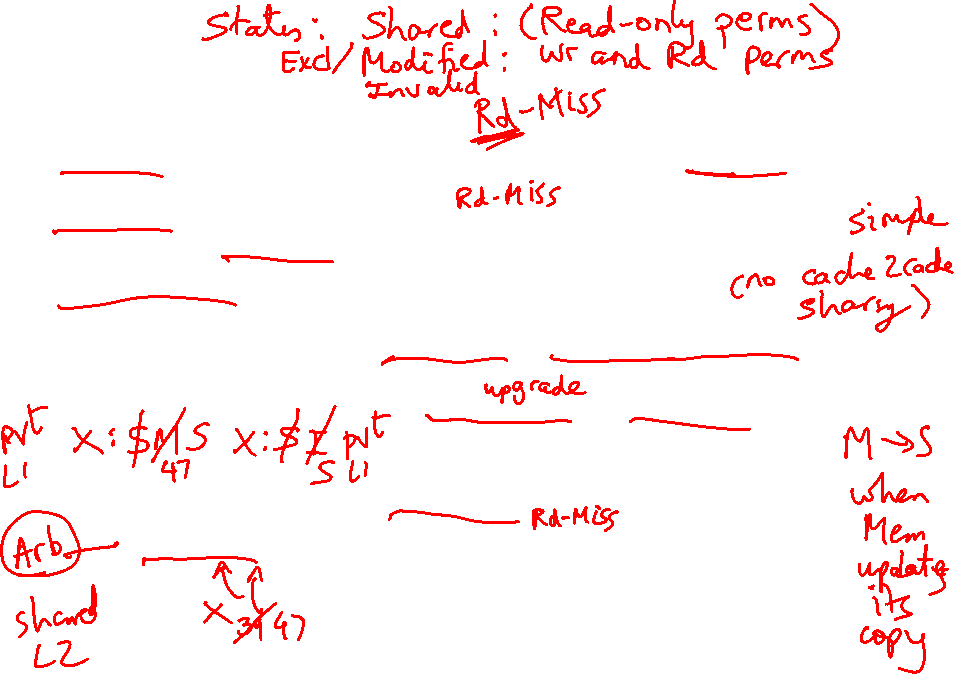 States: Shared: (Read-only perms)
Excl/Modified: Wr and Rd perms
Invalid
Rd-Miss
Rd-Miss
simple
(no cache2cache
sharing)
upgrade
pvt X: $ M S X: $ I pvt
L1 47 S L1
M → S
when
Mem
update
its
copy
Rd-Miss
Arb.
X 39 47
shared
L2